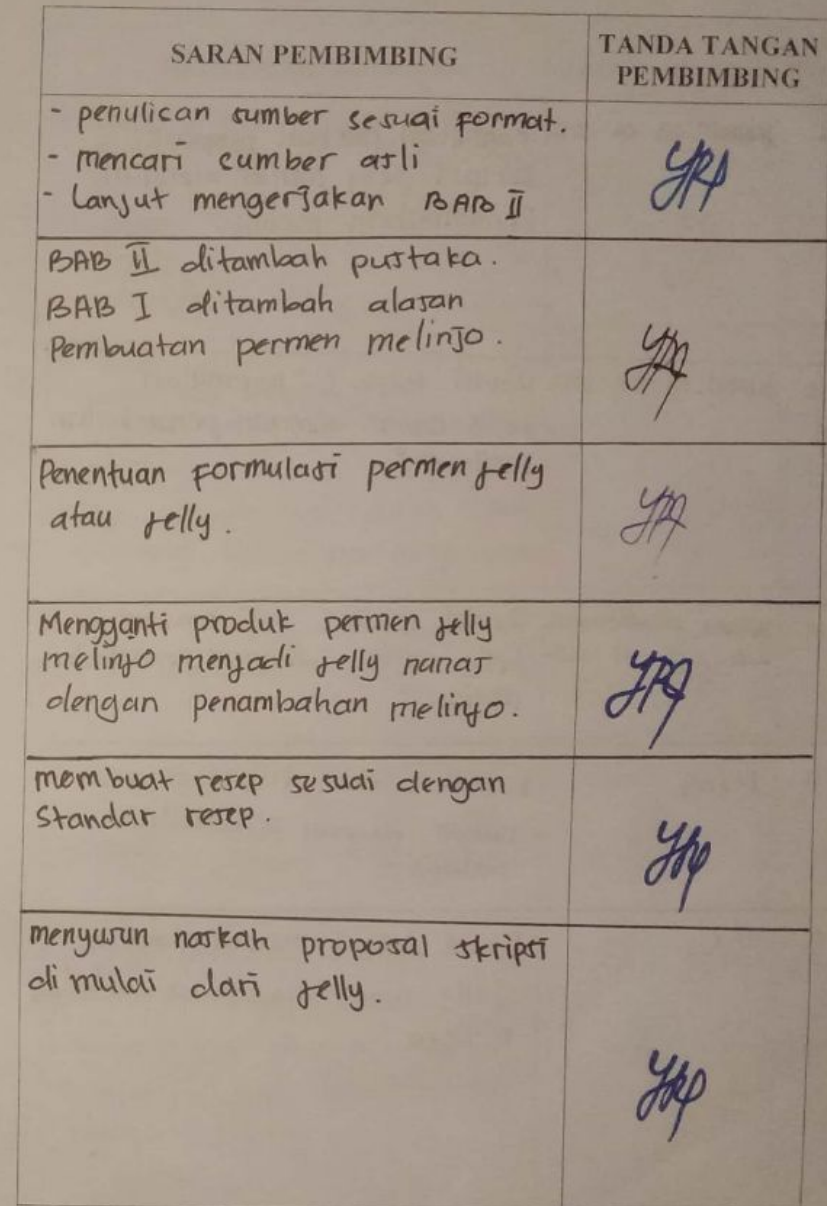 SARAN PEMBIMBING
TANDA TANGAN
PEMBIMBING
- penulisan sumber sesuai format.
- mencari sumber asli
- Lanjut mengerjakan BAB II
BAB II ditambah pustaka.
BAB I ditambah alasan
Pembuatan permen melinjo.
Penentuan formulasi permen jelly
atau jelly.
Mengganti produk permen jelly
melinjo menjadi jelly nanas
dengan penambahan melinjo.
membuat resep sesuai dengan
Standar resep.
menyusun naskah proposal skripsi
di mulai dari jelly.